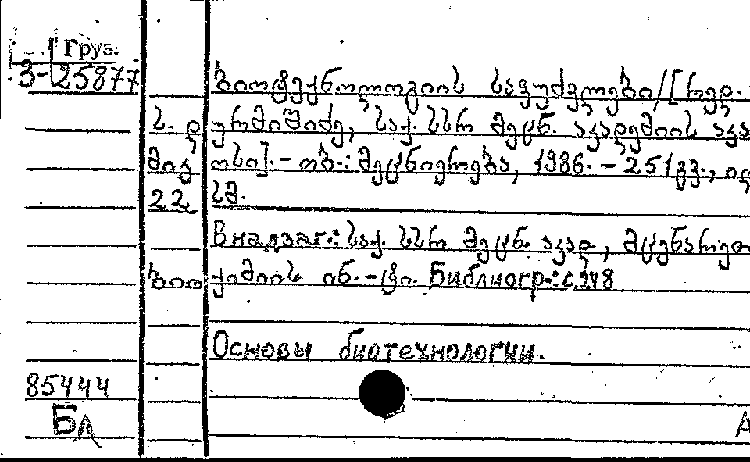 Груз.
3-25877
ბიოტექნოლოგიის საფუძვლები/[რედ.
ს. დურმიშიძე, საქ. სსრ მეცნ. აკადემიის აკა
მიკოსი]. - თბ.: მეცნიერება, 1986. - 251 გვ., ილ
22 სმ.
В надзаг.: საქ. სსრ მეცნ. აკად, მცენარეთ
ბიოქიმიის ინ.-ტი. Библиогр.: с. 248
Основы биотехнологии.
85444
Бл